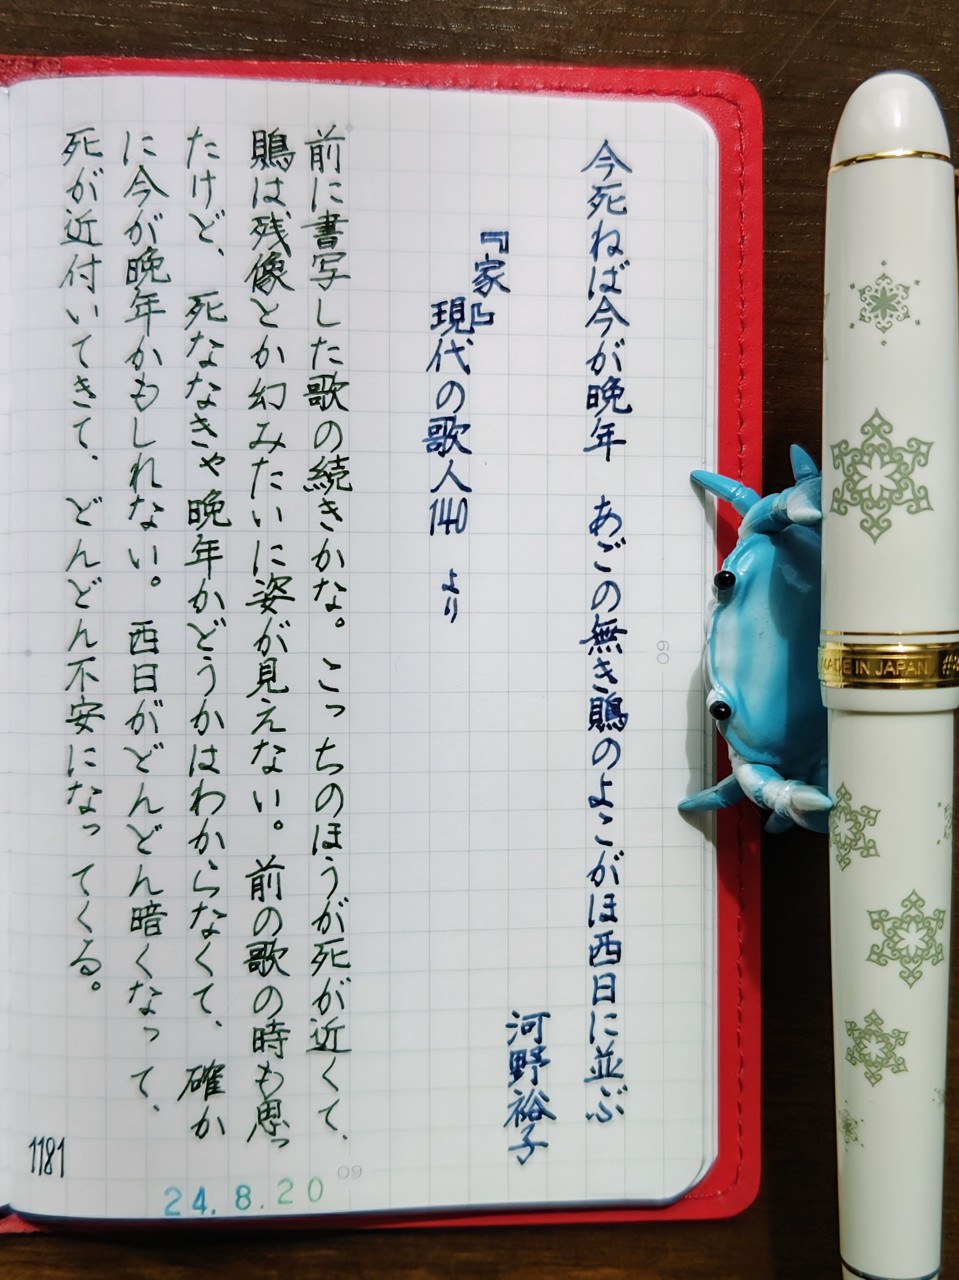 今死ねば今が晩年　あごの無き鵙のよこがほ西日に並ぶ
河野裕子
『家』
現代の歌人140　より
前に書写した歌の続きかな。こっちのほうが死が近くて、
鵙は残像とか幻みたいに姿が見えない。前の歌の時も思っ
たけど、死ななきゃ晩年かどうかはわからなくて、確か
に今が晩年かもしれない。西日がどんどん暗くなって、
死が近付いてきて、どんどん不安になってくる。
1181
24.8.20
60
60
MADE IN JAPAN